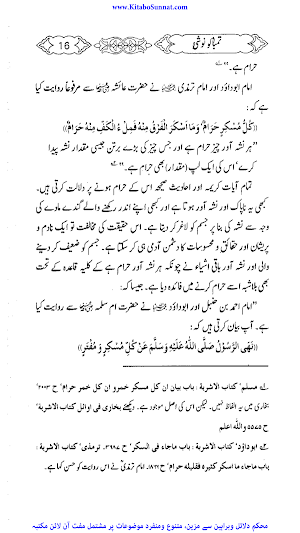 www.KitaboSunnat.com
تمباکو نوشی
16
حرام ہے۔"
امام ابوداؤد اور امام ترمذی نے حضرت عائشہ سے مرفوعاً روایت کیا
ہے کہ:
((كُلُّ مُسْكِرٍ حَرَامٌ وَمَا أَسْكَرَ الْفَرَقُ مِنْهُ فَمِلْءُ الْكَفِّ مِنْهُ حَرَامٌ))
"ہر نشہ آور چیز حرام ہے اور جس چیز کی بڑے برتن جیسی مقدار نشہ پیدا
کرے' اس کی ایک لپ (مقدار) بھی حرام ہے۔"
تمام آیات کریمہ اور احادیث صحیحہ اس کے حرام ہونے پر دلالت کرتی ہیں۔
کبھی یہ ناپاک اور نشہ آور ہوتا ہے اور کبھی اپنے اندر رکھنے والے گندے مادے کی
وجہ سے نشہ کی بنا پر جسم کو لاغر کر دیتا ہے۔ اس حقیقت کی مخالفت تو ایک نادم و
پریشان اور حقائق و محسوسات کا دشمن آدمی ہی کر سکتا ہے۔ جسم کو ضعیف کر دینے
والی اور نشہ آور باقی اشیاء نے چونکہ ہر نشہ آور حرام ہے کے کلیہ قاعدہ کے تحت
بھی بلاشبہ اسے حرام کرنے میں فائدہ دیا ہے۔ جیسا کہ:
"امام احمد بن حنبل اور ابوداؤد نے حضرت ام سلمہ سے روایت کیا
ہے۔ آپ بیان کرتی ہیں کہ:
((نَهَى الرَّسُوْلُ صَلَّى اللهُ عَلَيْهِ وَسَلَّمَ عَنْ كُلِّ مُسْكِرٍ وَ مُفْتِرٍ))
مسلم' کتاب الاشربۃ' باب بیان ان کل مسکر خمر و ان کل خمر حرام' ح ۲۰۰۳
بخاری میں یہ الفاظ نہیں۔ لیکن اس کی اصل موجود ہے۔ دیکھئے بخاری فی اوائل کتاب الاشربۃ'
ح ۵۵۷۵ واللہ اعلم
ابوداؤد' کتاب الاشربۃ' باب ماجاء فی السکر' ح ۳۶۸۷۔ ترمذی' کتاب الاشربۃ'
باب ماجاء ما اسکر کثیرہ فقلیلہ حرام' ح ۱۸۶۶۔ امام ترمذی نے اس روایت کو حسن کہا ہے۔
محکم دلائل وبراہین سے مزین، متنوع ومنفرد موضوعات پر مشتمل مفت آن لائن مکتبہ